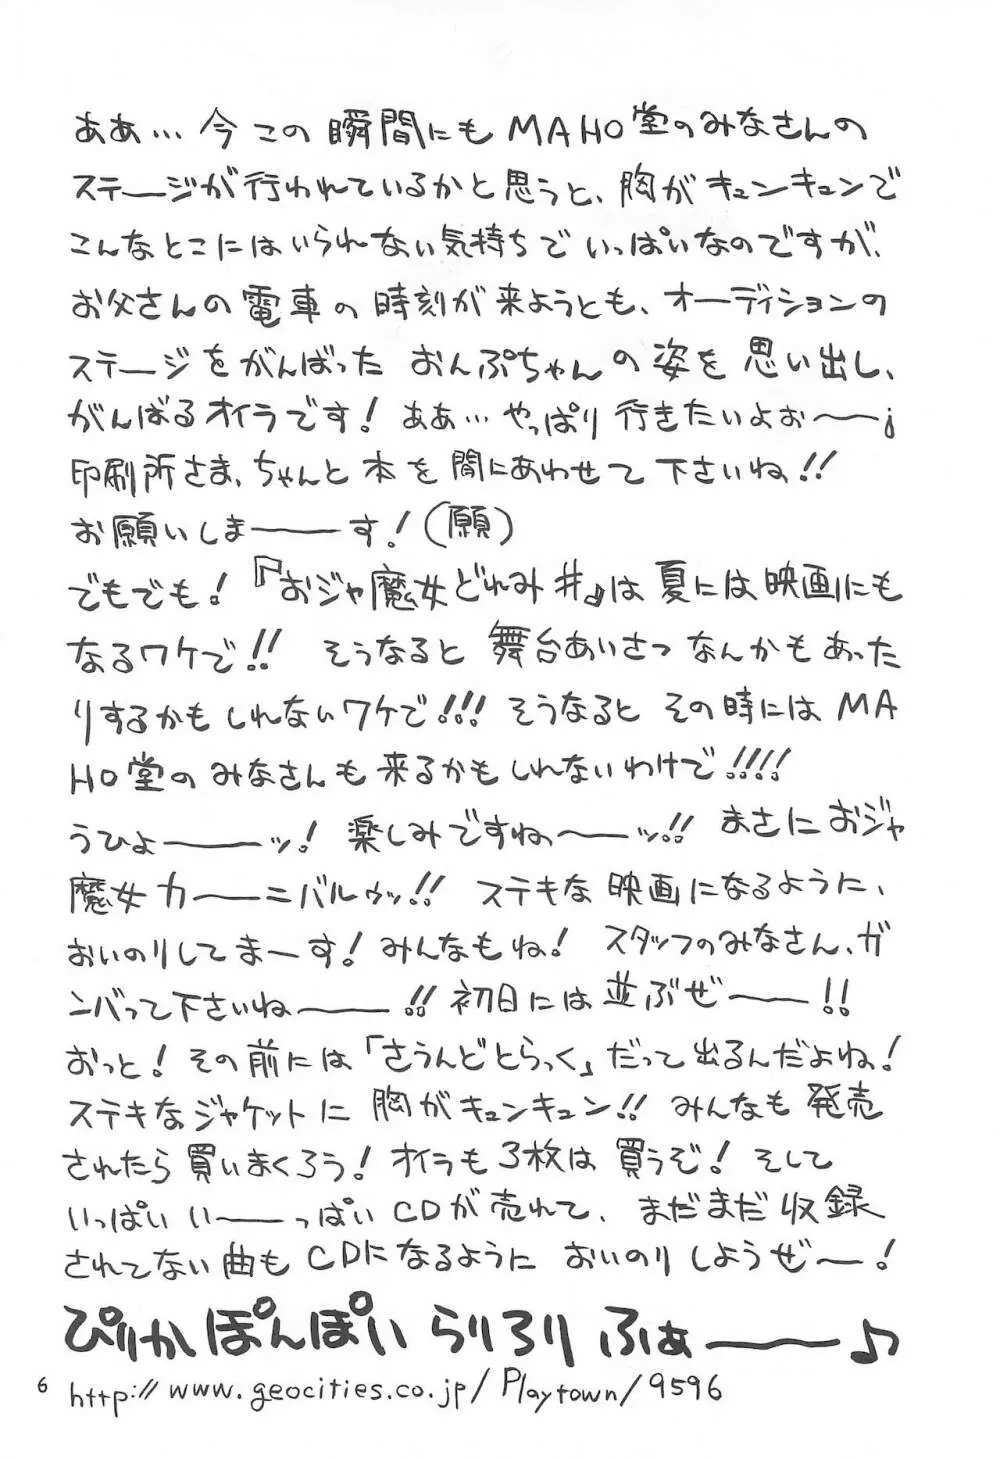 ああ…今この瞬間にもMAHO堂のみなさんの
ステージが行われているかと思うと、胸がキュンキュンで
こんなとこにはいられない気持ちでいっぱいなのですが、
お父さんの電車の時刻が来ようとも、オーディションの
ステージをがんばったおんぷちゃんの姿を思い出し、
がんばるオイラです!ああ…やっぱり行きたいよぉ〜〜¡
印刷所さま、ちゃんと本を間にあわせて下さいね!!
お願いしま――す!(願)
でもでも!『おジャ魔女どれみ#』は夏には映画にも
なるワケで!!そうなると舞台あいさつなんかもあった
りするかもしれないワケで!!!そうなるとその時にはMA
HO堂のみなさんも来るかもしれないわけで!!!!
うひょ〜〜ッ!楽しみですね〜〜ッ!!まさにおジャ
魔女カーニバルゥッ!!ステキな映画になるように、
おいのりしてまーす!みんなもね!スタッフのみなさん、ガ
ンバって下さいね〜〜!!初日には並ぶぜ〜〜!!
おっと!その前には「さうんどとらっく」だって出るんだよね!
ステキなジャケットに胸がキュンキュン!!みんなも発売
されたら買いまくろう!オイラも3枚は買うぞ!そして
いっぱいい〜〜っぱいCDが売れて、まだまだ収録
されてない曲もCDになるようにおいのりしようぜ〜!
ぴりかぽんぽいらりろりふぁ〜〜♪
6 http://www.geocities.co.jp/Playtown/9596